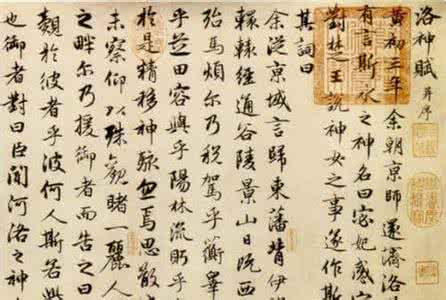 洛神賦 并序
黃初三年余朝京師還濟洛
有言斯水之神名曰宓妃感宋
對楚王說神女之事遂作斯
其詞曰
余從京域言歸東藩背伊
轘轅經通谷陵景山日既西
殆馬煩尔乃稅駕乎蘅皋
乎芝田容與乎陽林流眄乎
於是精移神駭忽焉思散
未察仰以殊觀睹一麗人
之畔尔乃援御者而告之曰
覿於彼者乎彼何人斯若此
也御者對曰臣聞河洛之神